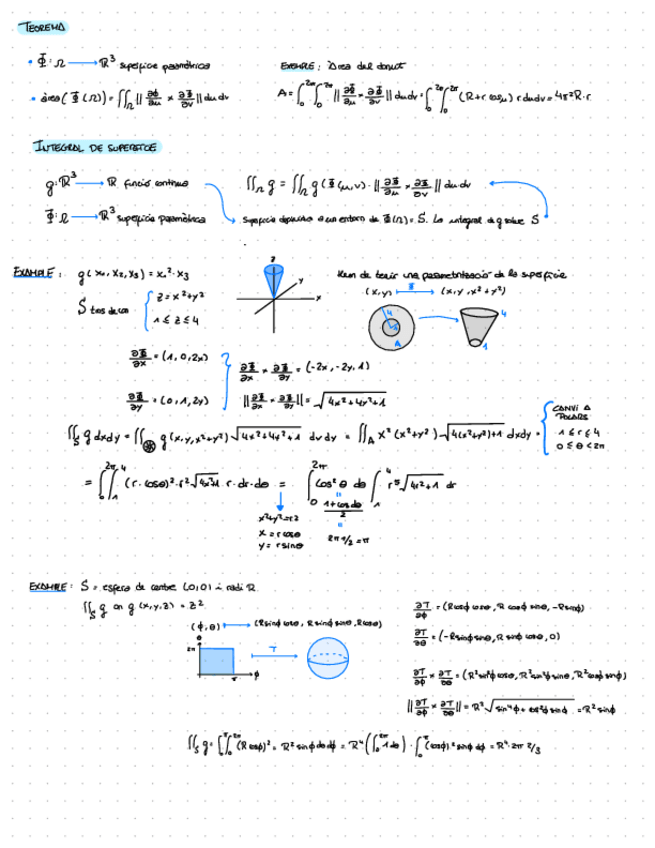 TEOREMA
• Φ: Ω ⟶ ℝ³ superfície paramètrica
• àrea(Φ(Ω)) = ∬_Ω ||∂Φ/∂μ × ∂Φ/∂v|| du dv
EXEMPLE: Àrea del donut
A = ∫₀^2π ∫₀^2π ||∂Φ/∂μ × ∂Φ/∂v|| du dv = ∫₀^2π ∫₀^2π (R + r cosμ) r du dv = 4π²R·r
INTEGRAL DE SUPERFÍCIE
g: ℝ³ ⟶ ℝ funció contínua
∬_Ω g = ∬_Ω g(Φ(μ,v) · ||∂Φ/∂μ × ∂Φ/∂v|| du dv
Φ: Ω ⟶ ℝ³ superfície paramètrica
a un entorn de Φ(Ω) = S. La integral de g sobre S
EXAMPLE: g(x₁, x₂, x₃) = x₁² · x₃
S tros de con { z = x² + y²
1 ≤ z ≤ 4
z
y
x
Hem de tenir una parametrització de la superfície
(x,y) ⟼ (x, y, x² + y²)
Φ
4
A
4
1
∂Φ/∂x = (1, 0, 2x)
∂Φ/∂y = (0, 1, 2y)
∂Φ/∂x × ∂Φ/∂y = (-2x, -2y, 1)
||∂Φ/∂x × ∂Φ/∂y|| = √(4x² + 4y² + 1)
∬_S g dx dy = ∬ g(x, y, x² + y²) √(4x² + 4y² + 1) dv dy = ∬_A x² (x² + y²) √(4(x² + y²) + 1) dx dy =
CANVI A
POLARS
1 ≤ r ≤ 4
0 ≤ θ < 2π
= ∫₀^2π ∫₁^4 (r · cosθ)² · r² √(4r² + 1) · r · dr · dθ = ∫₀^2π cos²θ dθ ∫₁^4 r⁵ √(4r² + 1) dr
x² + y² = r²
x = r cosθ
y = r sinθ
2π 1/2 = π
EXAMPLE: S = esfera de centre (0,0) i radi R
∬_S g on g(x,y,z) = z²
(ϕ, θ) ⟼ (R sinϕ cosθ, R sinϕ sinθ, R cosϕ)
θ
2π
π
ϕ
T
∂T/∂ϕ = (R cosϕ cosθ, R cosϕ sinθ, -R sinϕ)
∂T/∂θ = (-R sinϕ sinθ, R sinϕ cosθ, 0)
∂T/∂ϕ × ∂T/∂θ = (R² sin²ϕ cosθ, R² sin²ϕ sinθ, R² cosϕ sinϕ)
||∂T/∂ϕ × ∂T/∂θ|| = R² √(sin⁴ϕ + cos²ϕ sin²ϕ) = R² sinϕ
∬_S g = ∫₀^π ∫₀^2π (R cosϕ)² = R² sinϕ dθ dϕ = R⁴ (∫₀^2π 1 dθ) · ∫₀^π (cosϕ)² sinϕ dϕ = R⁴ · 2π 2/3